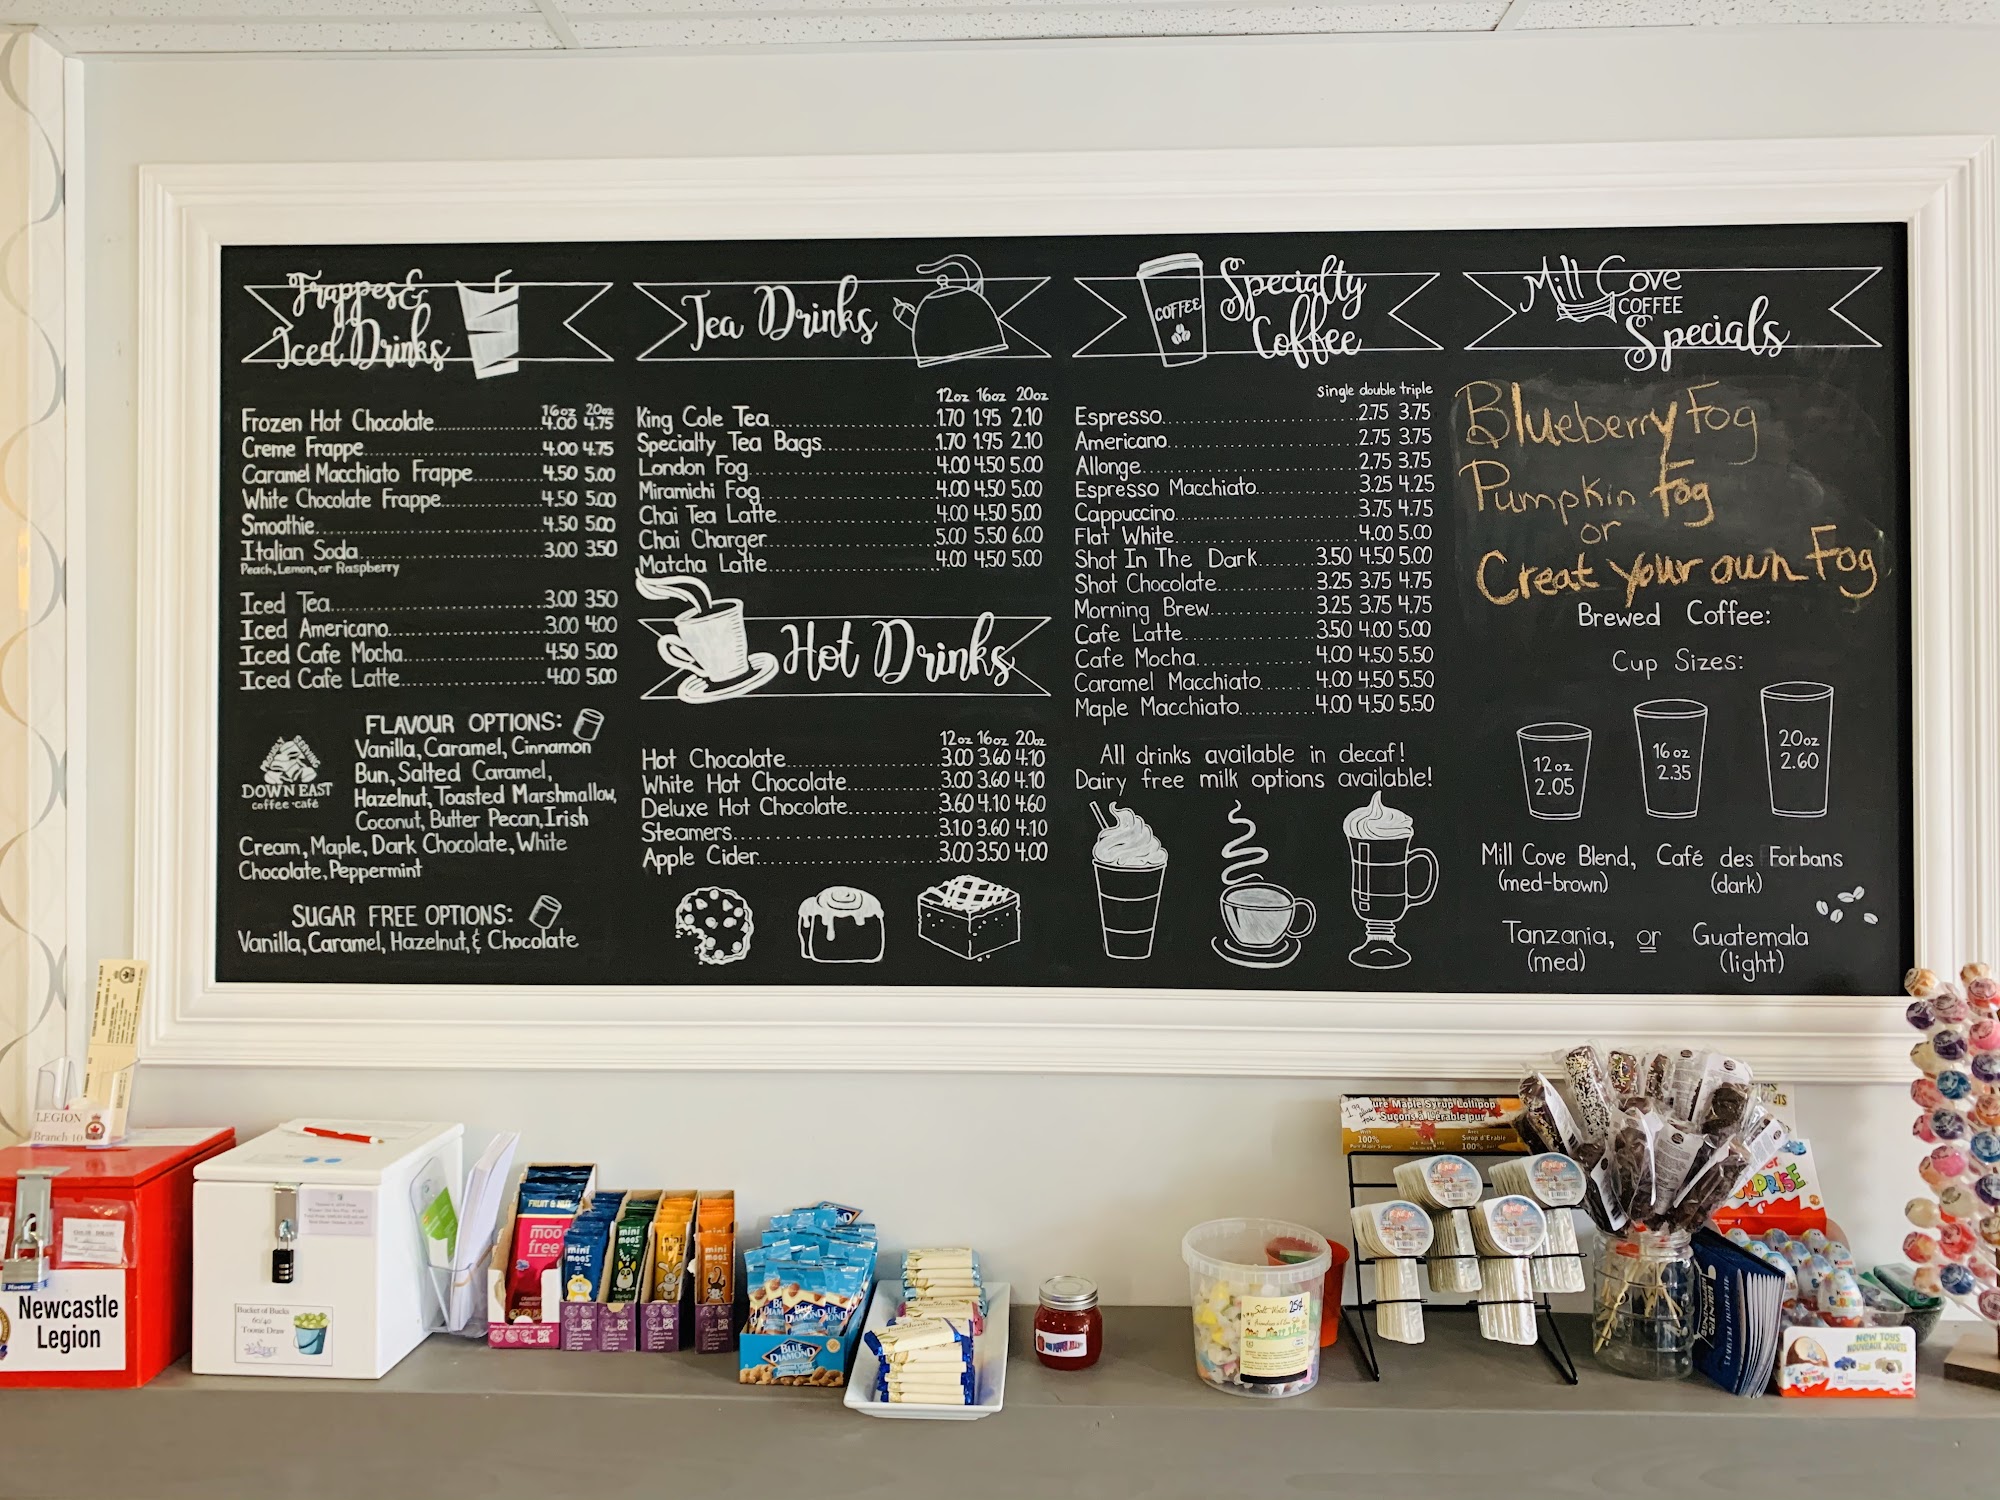 Frappes &
Iced Drinks
16oz 20oz
Frozen Hot Chocolate 4.00 4.75
Creme Frappe 4.00 4.75
Caramel Macchiato Frappe 4.50 5.00
White Chocolate Frappe 4.50 5.00
Smoothie 4.50 5.00
Italian Soda 3.00 3.50
Peach, Lemon, or Raspberry
Iced Tea 3.00 3.50
Iced Americano 3.00 4.00
Iced Cafe Mocha 4.50 5.00
Iced Cafe Latte 4.00 5.00
FLAVOUR OPTIONS:
Vanilla, Caramel, Cinnamon
Bun, Salted Caramel,
Hazelnut, Toasted Marshmallow,
Coconut, Butter Pecan, Irish
Cream, Maple, Dark Chocolate, White
Chocolate, Peppermint
PROUDLY SERVING
DOWN EAST
coffee · café
SUGAR FREE OPTIONS:
Vanilla, Caramel, Hazelnut, & Chocolate
Tea Drinks
12oz 16oz 20oz
King Cole Tea 1.70 1.95 2.10
Specialty Tea Bags 1.70 1.95 2.10
London Fog 4.00 4.50 5.00
Miramichi Fog 4.00 4.50 5.00
Chai Tea Latte 4.00 4.50 5.00
Chai Charger 5.00 5.50 6.00
Matcha Latte 4.00 4.50 5.00
Hot Drinks
12oz 16oz 20oz
Hot Chocolate 3.00 3.60 4.10
White Hot Chocolate 3.00 3.60 4.10
Deluxe Hot Chocolate 3.60 4.10 4.60
Steamers 3.10 3.60 4.10
Apple Cider 3.00 3.50 4.00
COFFEE
Specialty
Coffee
single double triple
Espresso 2.75 3.75
Americano 2.75 3.75
Allonge 2.75 3.75
Espresso Macchiato 3.25 4.25
Cappuccino 3.75 4.75
Flat White 4.00 5.00
Shot In The Dark 3.50 4.50 5.00
Shot Chocolate 3.25 3.75 4.75
Morning Brew 3.25 3.75 4.75
Cafe Latte 3.50 4.00 5.00
Cafe Mocha 4.00 4.50 5.50
Caramel Macchiato 4.00 4.50 5.50
Maple Macchiato 4.00 4.50 5.50
All drinks available in decaf!
Dairy free milk options available!
Mill Cove
COFFEE
Specials
Blueberry Fog
Pumpkin Fog
or
Creat your own Fog
Brewed Coffee:
Cup Sizes:
12oz
2.05
16oz
2.35
20oz
2.60
Mill Cove Blend, Café des Forbans
(med-brown) (dark)
Tanzania, or Guatemala
(med) (light)
LEGION
Branch 10
Newcastle
Legion
Bucket of Bucks
60/40
Toonie Draw
FRUIT & NUT
moo
free
mini
moos
mini
moos
mini
moos
mini
moos
BLUE
DIAMOND
Salt Water
25¢
1.99
Pure Maple Syrup Lollipop
Suçons à l'érable pur
100%
Sirop d'Érable
100%
Kinder
SURPRISE
NEW TOYS
NOUVEAUX JOUETS